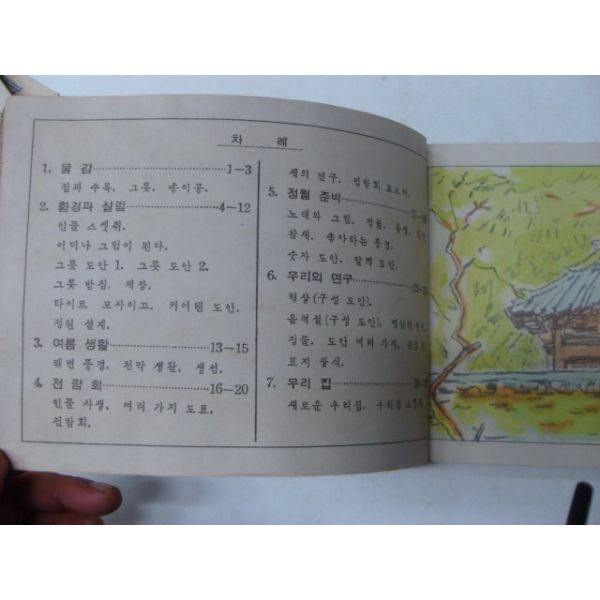 차 례
1. 물 감 1—3
집과 수목, 그릇, 종이공.
2. 환경과 살림 4—12
인물 스켓취.
어디나 그림이 된다.
그릇 도안 1. 그릇 도안 2.
그릇 받침, 책상.
타이르 모자이끄, 커어텐 도안.
정원 설계.
3. 여름 생활 13—15
해변 풍경, 천막 생활, 생선.
4. 전 람 회 16—20
인물 사생, 여러 가지 도표.
전람회.
색의 연구, 전람회 포스터.
5. 정월 준비
노래와 그림, 정물, 동세,
참새, 좋아하는 풍경.
숫자 도안, 달력 도안.
6. 우리의 연구
형상(구성 도안).
음악설(구성 도안),
정물, 도안 여러 가지,
표지 장식.
7. 우리 집
새로운 우리집, 우리집